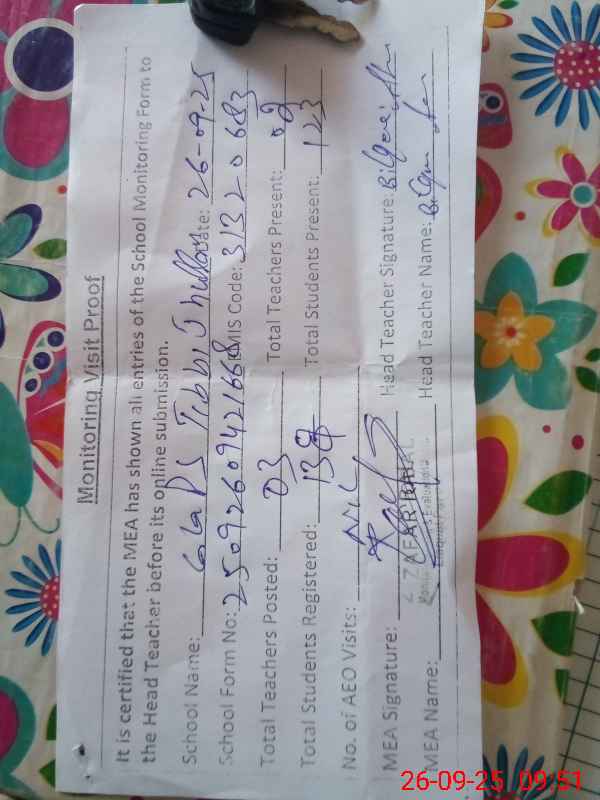 Monitoring Visit Proof
It is certified that the MEA has shown all entries of the School Monitoring Form to
the Head Teacher before its online submission.
School Name: GGPS Tibbi Jhullan Date: 26-09-25
School Form No: 25092609421668 EMIS Code: 31320683
Total Teachers Posted: 03 Total Teachers Present: 02
Total Students Registered: 139 Total Students Present: 123
No. of AEO Visits: Nil
MEA Signature: Head Teacher Signature:
MEA Name: ZAFAR IQBAL Head Teacher Name:
26-09-25 09:51